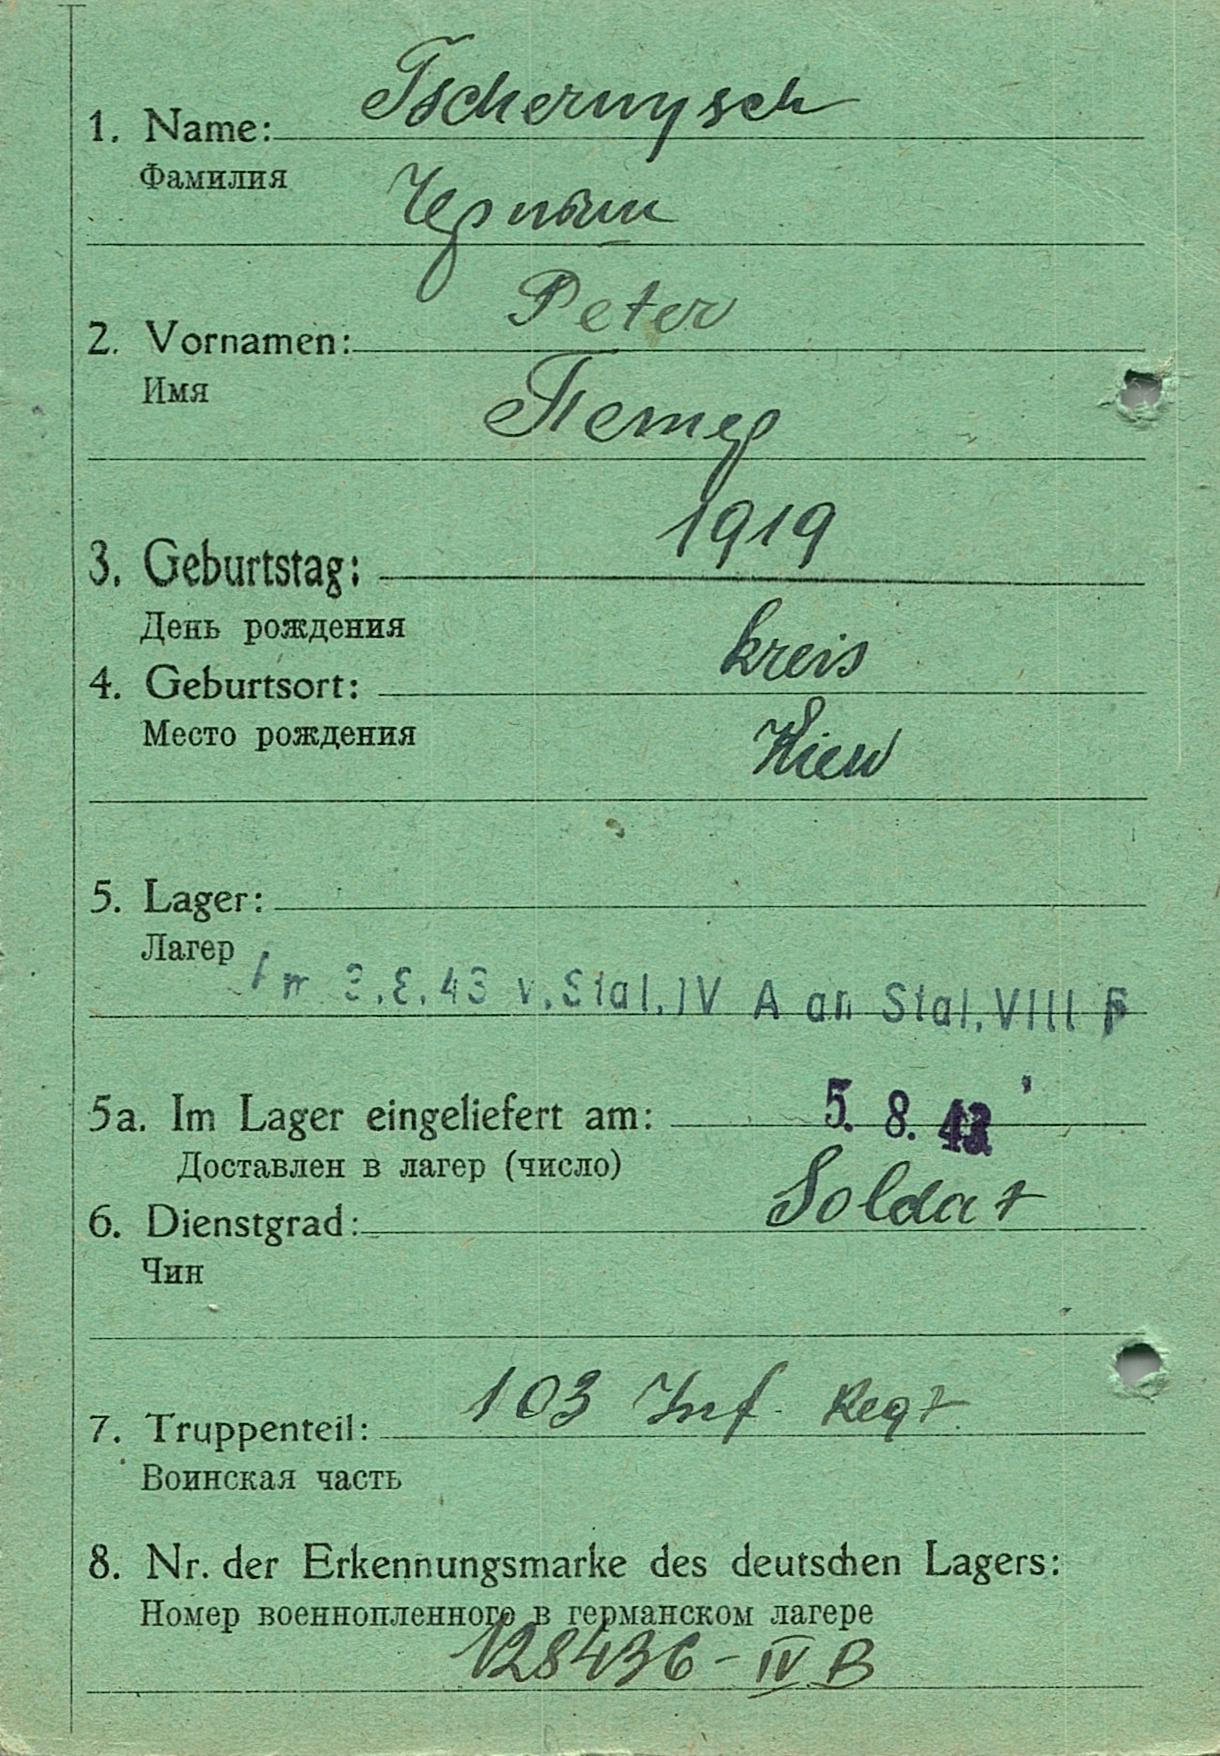 1. Name: Tschernysch
Фамилия
Черныш
Peter
2. Vornamen:
Имя
Петер
1919
3. Geburtstag:
День рождения
kreis
4. Geburtsort:
Место рождения
Kiew
5. Lager:
Лагер
v. Stal. IV A an Stal. VIII F
5a. Im Lager eingeliefert am: 5. 8. 43
Доставлен в лагер (число)
6. Dienstgrad: Soldat
Чин
7. Truppenteil: 103 Inf. Regt
Воинская часть
8. Nr. der Erkennungsmarke des deutschen Lagers:
Номер военнопленного в германском лагере
128436 - IV B